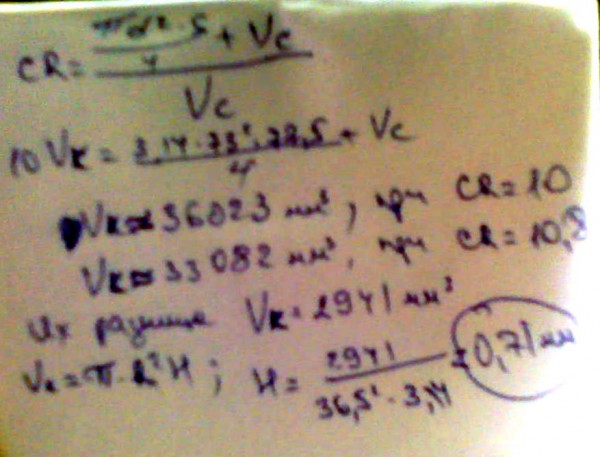 CR = (πd²·S/4 + Vc) / Vc
10 Vк = 3,14·73²·78,5/4 + Vc
Vк ≈ 36023 мм³, при CR = 10
Vк ≈ 33082 мм³, при CR = 10,8
Их разница Vк = 2941 мм³
Vк = π·R²H; H = 2941 / 36,5²·3,14 = 0,71 мм